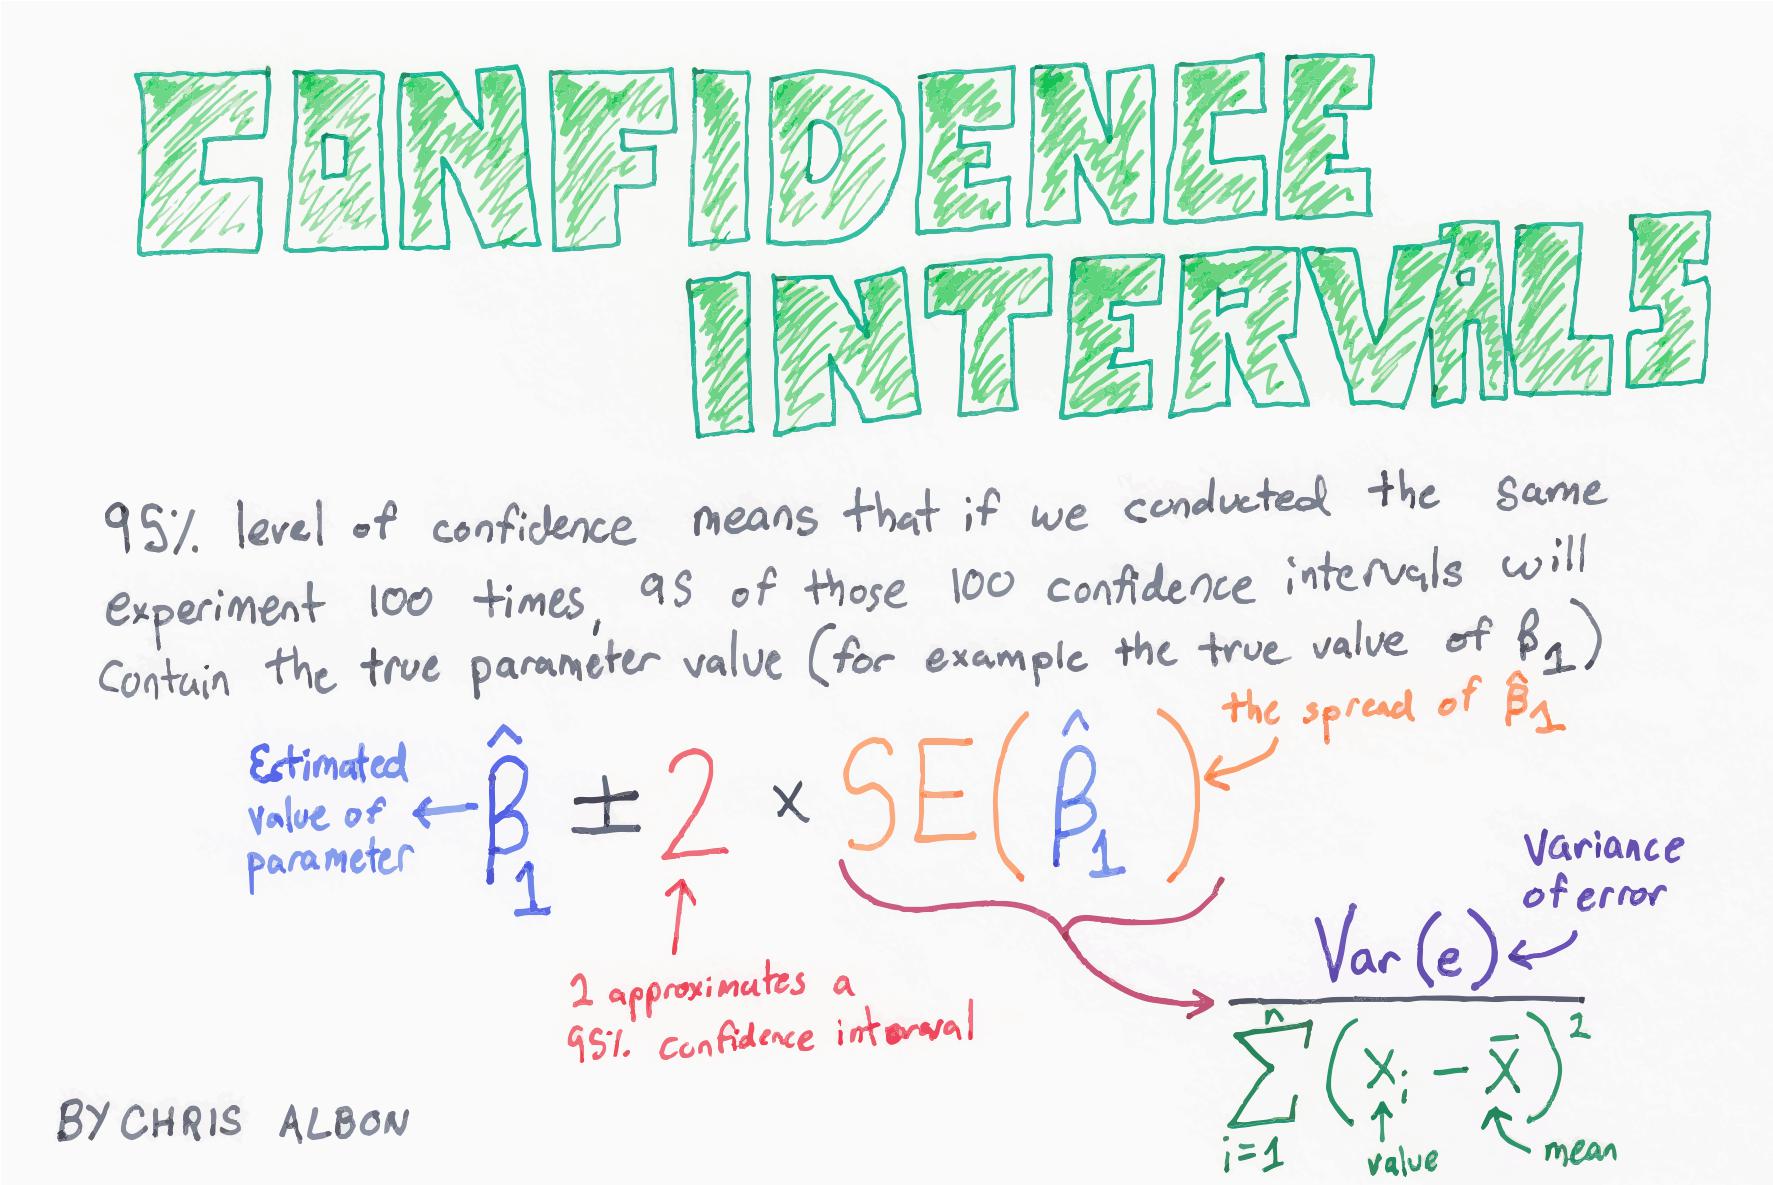 CONFIDENCE
INTERVALS
95% level of confidence means that if we conducted the same
experiment 100 times, 95 of those 100 confidence intervals will
contain the true parameter value (for example the true value of β1)
the spread of β̂1
Estimated
value of
parameter
β̂1 ± 2 × SE(β̂1)
Variance
of error
Var(e)
2 approximates a
95% confidence interval
n
Σ (xi - x̄)2
i=1
value
mean
BY CHRIS ALBON